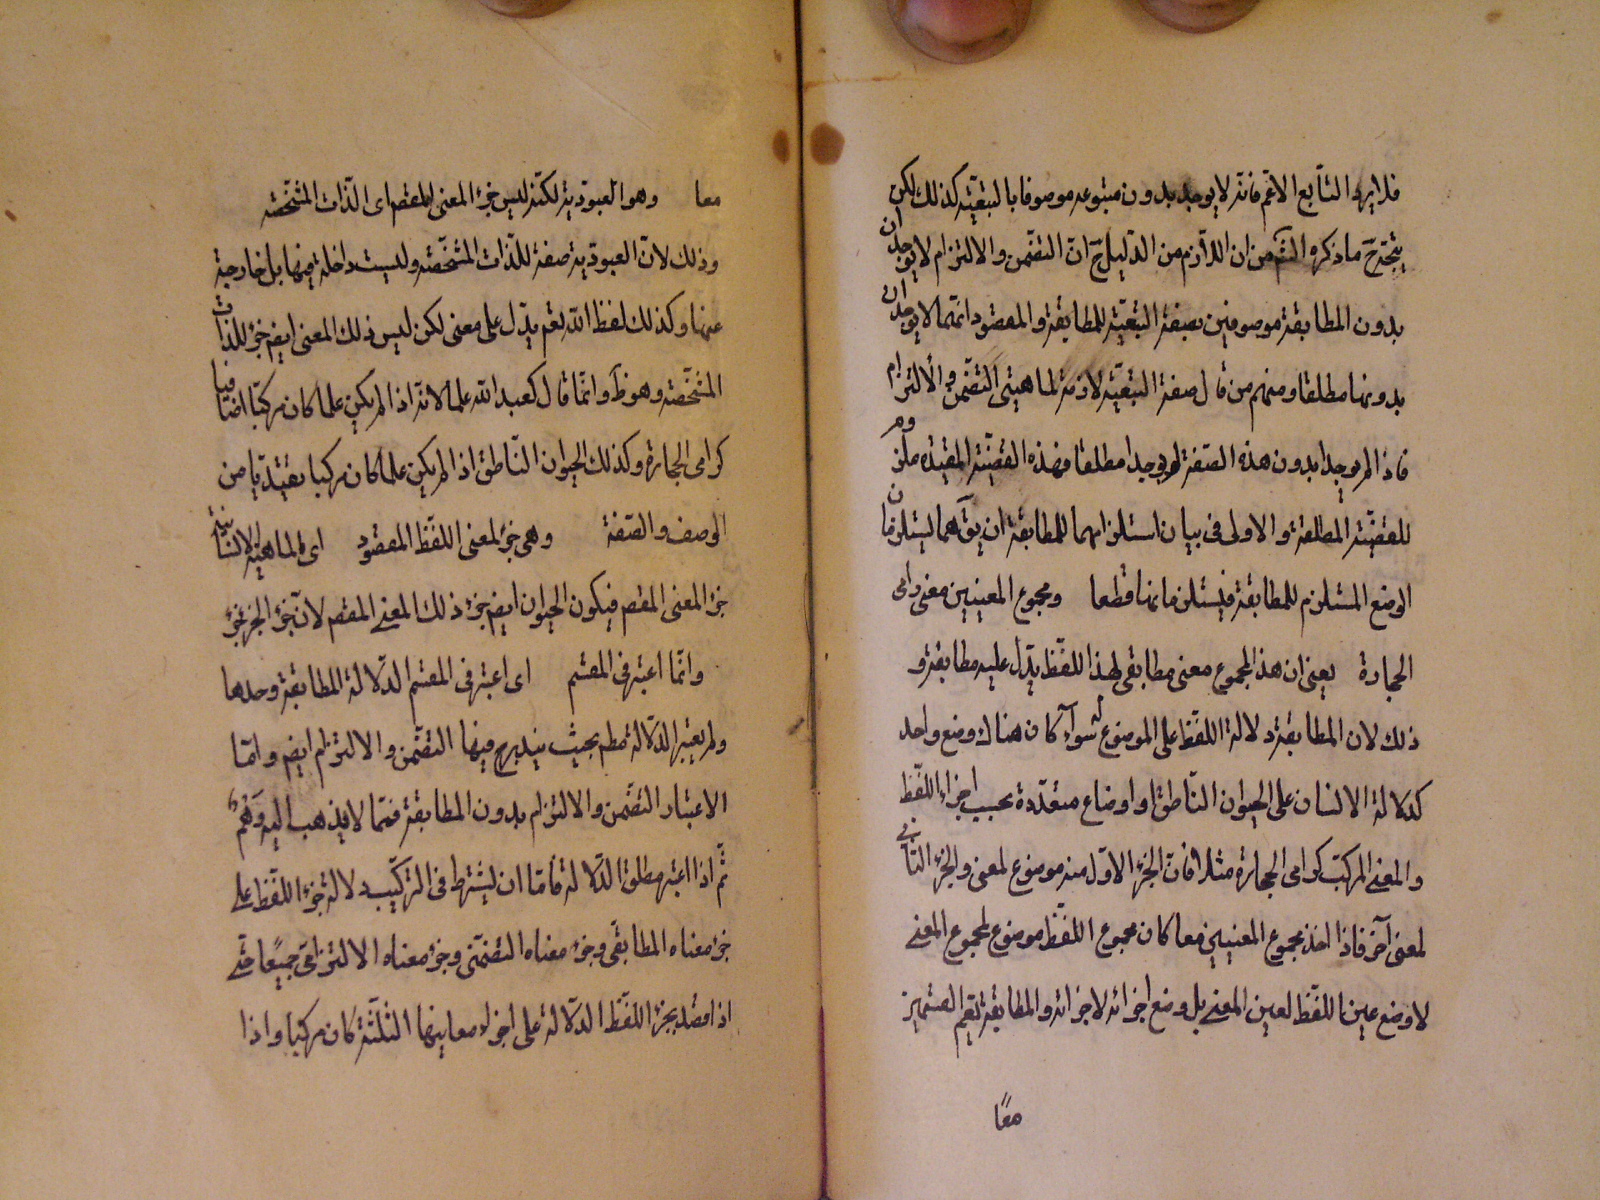 فلا يرد التابع الاعم فانه لا يوجد بدون متبوعه موصوفا بالتبعية كذلك لكن
يتجه ح ما ذكره الشم من ان اللازم من الدليل ح ان التضمن والالتزام لا يوجدان
بدون المطابقة موصوفين بصفة التبعية للمطابقة والمقصود انهما لا يوجدان
بدونها مطلقا ومنهم من قال صفة التبعية لازمة لماهيتى التضمن والالتزام
فاذا لم يوجدا بدون هذه الصفة لم يوجدا مطلقا فهذه القضية المقيدة ملزومة
للقضية المطلقة والاولى فى بيان استلزامهما للمطابقة ان يق هما يستلزمان
الوضع المستلزم للمطابقة فيستلزمانها قطعا ومجموع المعنيين معنى رامى
الحجارة يعنى ان هذا المجموع معنى مطابقى لهذا اللفظ يدل عليه مطابقة و
ذلك لان المطابقة دلالة اللفظ على الموضوع له سواء كان هناك وضع واحد
كدلالة الانسان على الحيوان الناطق او اوضاع متعددة بحسب اجزاء اللفظ
والمعنى المركب كرامى الحجارة مثلا فان الجزء الاول منه موضوع لمعنى والجزء الثانى
لمعنى آخر فاذا اخذ مجموع المعنيين معا كان مجموع اللفظ موضوع لمجموع المعنى
لا وضع عين اللفظ لعين المعنى بل وضع اجزائه لاجزائه والمطابقة تعم القسمين
معا
معا وهو العبودية لكنه ليس جزء المعنى المقصم اى الذات المشخصة
وذلك لان العبودية صفة للذات المشخصة وليست داخلة فيها بل خارجة
عنها وكذلك لفظ الله تعم يدل على معنى لكن ليس ذلك المعنى ايضم جزء للذات
المشخصة وهو ظ وانما قال كعبد الله علما لانه اذا لم يكن علما كان مركبا اضافيا
كرامى الحجارة وكذلك الحيوان الناطق اذا لم يكن علما كان مركبا تقييديا من
الوصف والصفة وهى جزء لمعنى اللفظ المقصود اى الماهية الانسانية
جزء المعنى المقصم فيكون الحيوان ايضم جزء ذلك المعنى المقصم لان جزء الجزء جزء
وانما اعتبر فى المقسم اى اعتبر فى المقسم الدلالة المطابقة وحدها
ولم يعتبر الدلالة مطم بحيث يندرج فيها التضمن والالتزام ايضم واما
الاعتبار التضمن والالتزام بدون المطابقة فمما لا يذهب اليه وهم
ثم اذا اعتبر مطلق الدلالة فاما ان يشترط فى التركيب دلالة جزء اللفظ على
جزء معناه المطابقى وجزء معناه التضمنى وجزء معناه الالتزامى جميعا حتى
اذا قصد بجزء اللفظ الدلالة على اجزاء معانيها الثلثة كان مركبا واذا